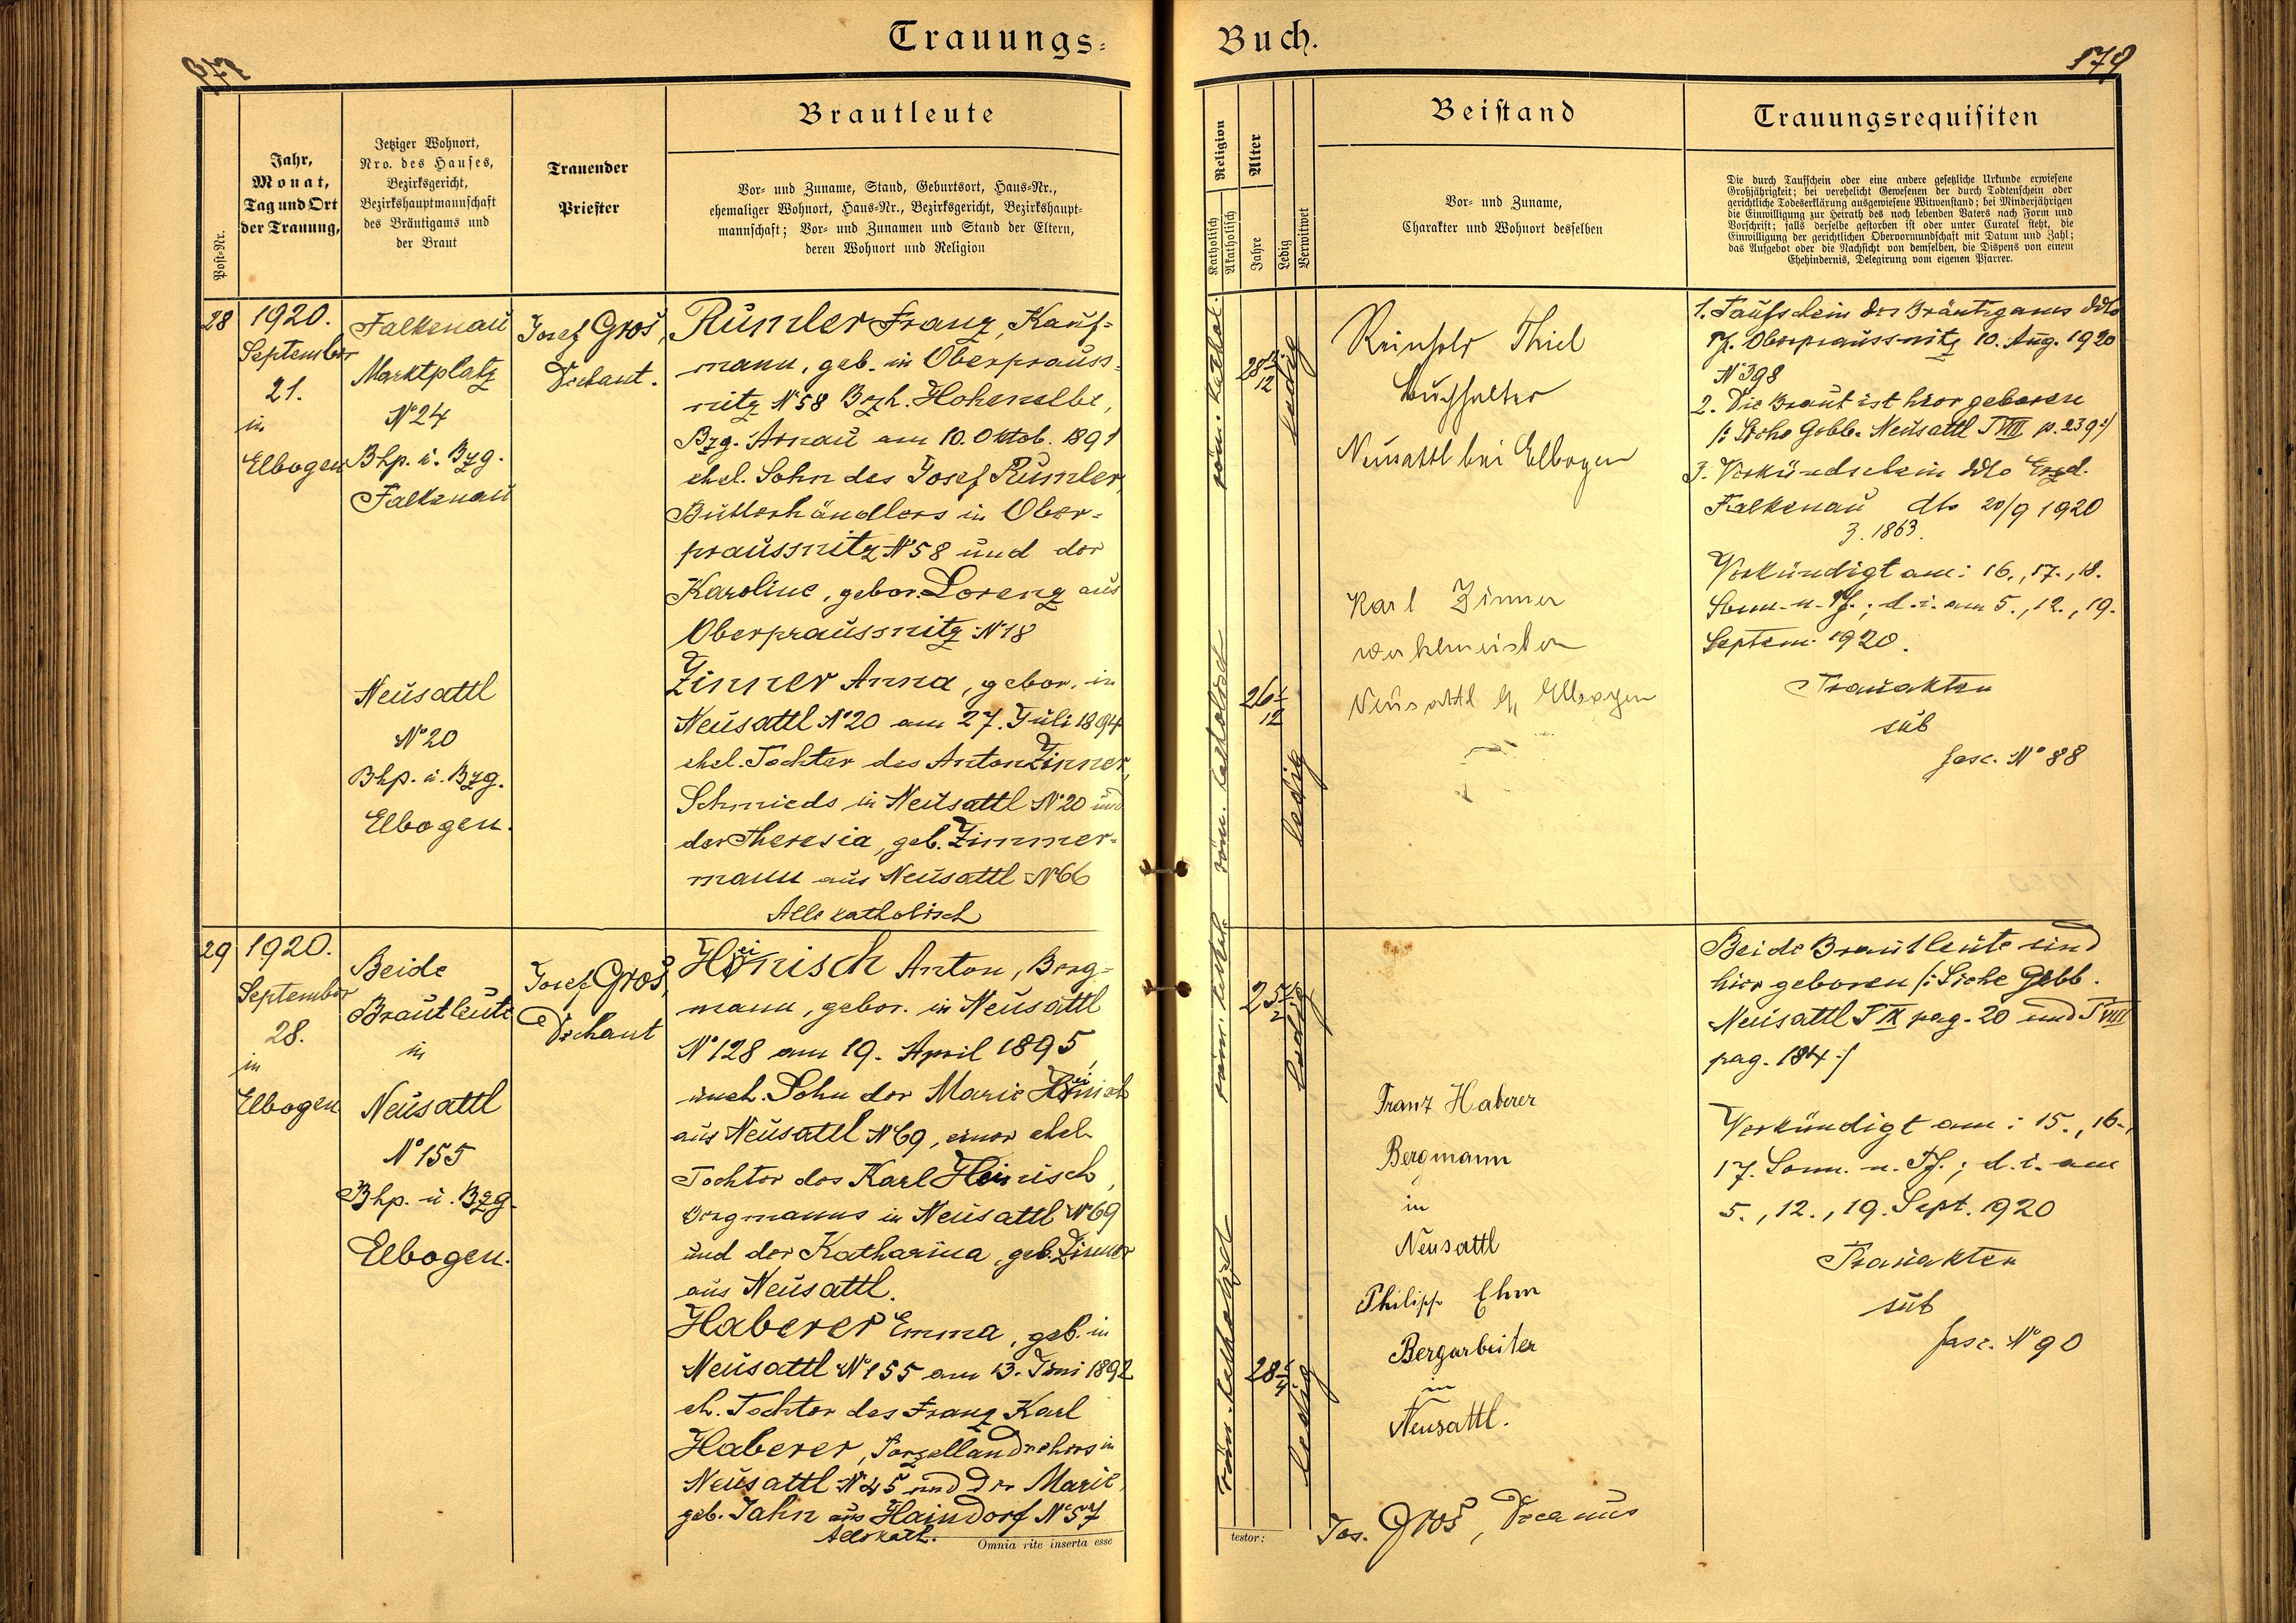 Trauungs-
177
Post-Nr.
Jahr,
Monat,
Tag und Ort
der Trauung,
Jetziger Wohnort,
Nro. des Hauses,
Bezirksgericht,
Bezirkshauptmannschaft
des Bräutigams und
der Braut
Trauender
Priester
Brautleute
Vor- und Zuname, Stand, Geburtsort, Haus-Nr.,
ehemaliger Wohnort, Haus-Nr., Bezirksgericht, Bezirkshaupt-
mannschaft; Vor- und Zunamen und Stand der Eltern,
deren Wohnort und Religion
28
1920.
September
21.
in
Elbogen
Falkenau
Marktplatz
N°24
Bhp. u. Bzg.
Falkenau
Josef Gros,
Dechant.
Rumler Franz, Kauf-
mann, geb. in Oberprauss-
nitz N°58 Bzh. Hohenelbe,
Bzg. Arnau am 10. Oktob. 1891
ehel. Sohn des Josef Rumler,
Butterhändlers in Ober-
praussnitz N°58 und der
Karoline, gebor. Lorenz aus
Oberpraussnitz N°18
Neusattl
N°20
Bhp. u. Bzg.
Elbogen.
Zinner Anna, gebor. in
Neusattl N°20 am 27. Juli 1894
ehel. Tochter des Anton Zinner,
Schmieds in Neusattl N°20 und
der Theresia, geb. Zimmer-
mann aus Neusattl N°66
Alle katholisch
29
1920.
September
28.
in
Elbogen
Beide
Brautleute
in
Neusattl
N°155
Bhp. u. Bzg.
Elbogen.
Josef Gros,
Dechant
Heinisch Anton, Berg-
mann, gebor. in Neusattl
N°128 am 19. April 1895,
uneh. Sohn der Marie Heinisch
aus Neusattl N°69, einer ehel.
Tochter des Karl Heinisch,
Bergmanns in Neusattl N°69
und der Katharina, geb. Zinner
aus Neusattl.
Haberer Emma, geb. in
Neusattl N°155 am 13. Juni 1892
eh. Tochter des Franz Karl
Haberer, Porzellandrehers in
Neusattl N°45 und der Marie,
geb. Jahn aus Haindorf N°57
Alle kath.
Omnia rite inserta esse
Buch.
179
Religion
Katholisch
Akatholisch
Alter
Jahre
Ledig
Verwitwet
Beistand
Vor- und Zuname,
Charakter und Wohnort desselben
Trauungsrequisiten
Die durch Taufschein oder eine andere gesetzliche Urkunde erwiesene
Großjährigkeit; bei verehelicht Gewesenen der durch Todtenschein oder
gerichtliche Todeserklärung ausgewiesene Witwenstand; bei Minderjährigen
die Einwilligung zur Heirath des noch lebenden Vaters nach Form und
Vorschrift; falls derselbe gestorben ist oder unter Curatel steht, die
Einwilligung der gerichtlichen Obervormundschaft mit Datum und Zahl;
das Aufgebot oder die Nachsicht von demselben, die Dispens von einem
Ehehindernis, Delegirung vom eigenen Pfarrer.
röm. kathol.
28 11/12
ledig
Reinhold Thiel
Buchhalter
Neusattl bei Elbogen
1. Taufschein des Bräutigams ddto
Pf. Oberpraussnitz 10. Aug. 1920
N°398
2. Die Braut ist hier geboren
/: Siehe Gebb. Neusattl T VIII p. 239 :/
3. Verkündschein ddto Erzd.
Falkenau dto 20/9 1920
Z. 1863.
Verkündigt am: 16., 17., 18.
Sonn. n. Pf.; d. i. am 5., 12., 19.
Septem. 1920.
Trauakten
sub
fasc. N°88
röm. katholisch
26 1/12
ledig
Karl Zinner
Werkmeister
Neusattl b/ Elbogen
röm. kathol.
25 1/2
ledig
Franz Haberer
Bergmann
in
Neusattl
Philipp Ehm
Bergarbeiter
in
Neusattl.
Beide Brautleute sind
hier geboren /: Siehe Gebb.
Neusattl T IX pag. 20 und T VIII
pag. 184 :/
Verkündigt am: 15., 16.,
17. Sonn. n. Pf.; d. i. am
5., 12., 19. Sept. 1920
Trauakten
sub
fasc. N°90
röm. katholisch
28
ledig
testor:
Jos. Gros, Decanus